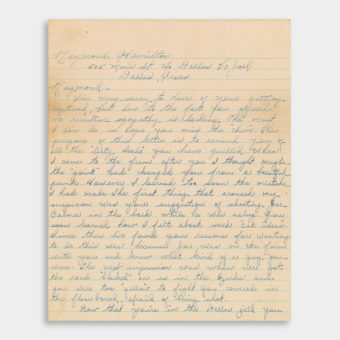 Raymond Hamilton
505 Main St. % Dallas Co Jail,
Dallas, Texas
Raymond:-
I'm very sorry to hear of your getting
captured, but due to the fact you offered
no resistance sympathy is lacking. The most
I can do is hope you miss the chair. The
purpose of this letter is to remind you of
all the dirty deals you have pulled. When
I came to the farm after you I thought maybe
the "joint" had changed you from a boastful
punk. However I learned too soon the mistake
I had made. The first thing that aroused my
suspicion was your suggestion of shooting Joe
Palmer in the back while he was asleep. You
soon learned how I felt about such "cat" ideas.
Since then I've found your reasons for wanting
to do this was because Joe was on the farm
with you and knew what kind of a guy you
were. The next impression was when we got
the road "blocked" on us in the Ozarks and
you were too "yellow" to fight. You cowered in
the floorboard, afraid of being shot.
Now that you're in the Dallas jail you